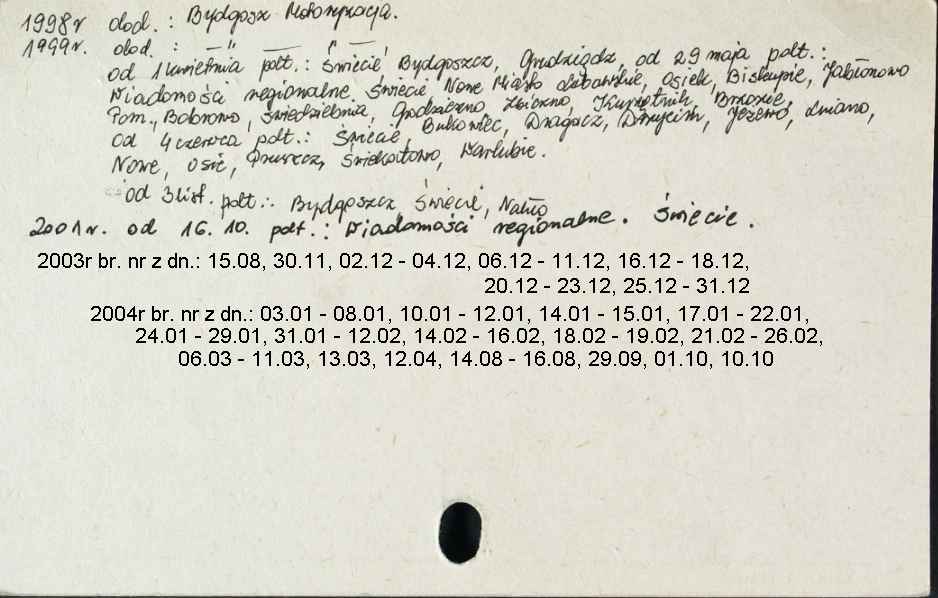 1998r dod. : Bydgoszcz Motoryzacja.
1999r. dod. : — " — " —
od 1 kwietnia podt.: Świecie Bydgoszcz, Grudziądz, od 29 maja podt.:
Wiadomości regionalne Świecie Nowe Miasto Lubawskie, Osiek, Biskupie, Jabłonowo
Pom., Bobrowo, Świedziebnia, Grodziczno, Zbiczno, Kurzętnik, Brzozie,
od 4 czerwca podt.: Świecie, Bukowiec, Dragacz, Drzycim, Jeżewo, Lniano,
Nowe, Osie, Pruszcz, Świekatowo, Warlubie.
od 3 list. podt.: Bydgoszcz, Świecie, Nakło
2001r. od 16. 10. podt.: Wiadomości regionalne. Świecie.
2003r br. nr z dn.: 15.08, 30.11, 02.12 - 04.12, 06.12 - 11.12, 16.12 - 18.12,
20.12 - 23.12, 25.12 - 31.12
2004r br. nr z dn.: 03.01 - 08.01, 10.01 - 12.01, 14.01 - 15.01, 17.01 - 22.01,
24.01 - 29.01, 31.01 - 12.02, 14.02 - 16.02, 18.02 - 19.02, 21.02 - 26.02,
06.03 - 11.03, 13.03, 12.04, 14.08 - 16.08, 29.09, 01.10, 10.10